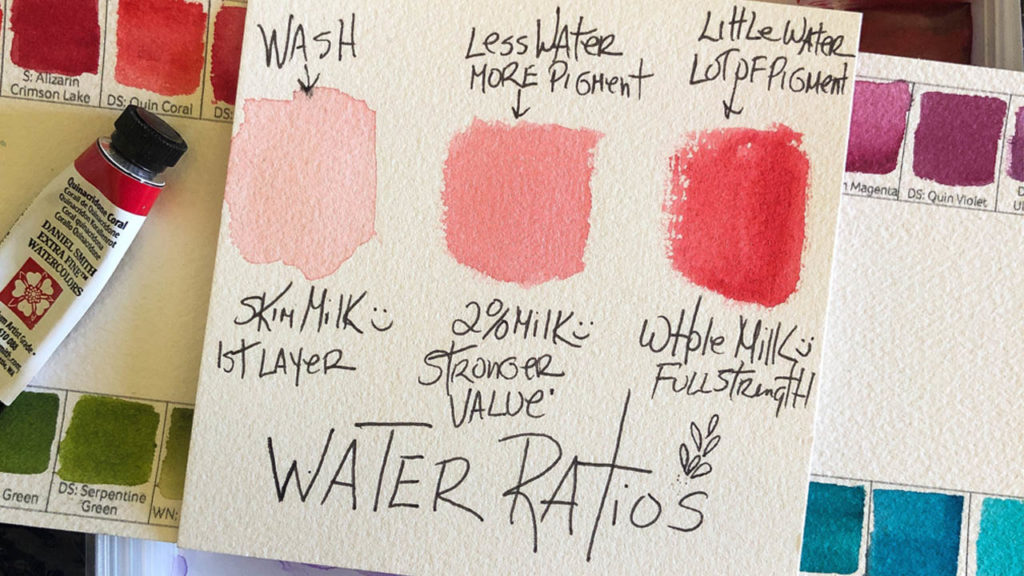 S: Alizarin
Crimson Lake
DS: Quin Coral
DS:
WASH
Less Water
More Pigment
Little Water
Lot of Pigment
Skim Milk
1st Layer
2% Milk
Stronger
Value
Whole Milk
Full Strength
WATER RATIOS
Quinacridone Coral
Corail de Quinacridone
DANIEL SMITH
EXTRA FINE™
WATERCOLORS
Magenta
DS: Quin Violet
Green
DS: Serpentine
Green
WN: